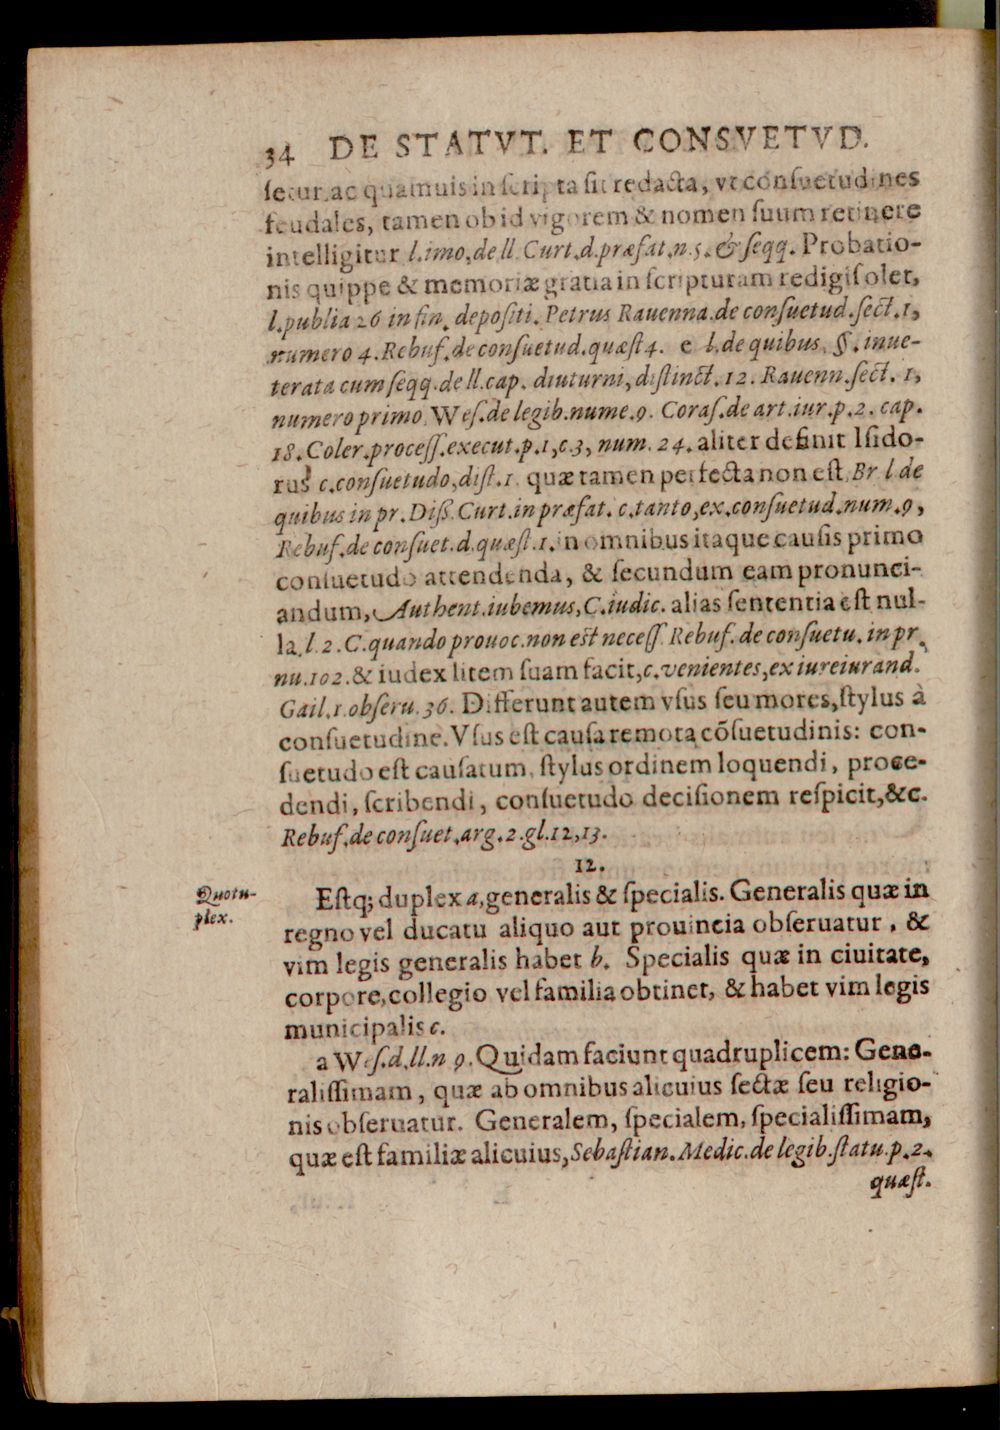 34 DE STATVT. ET CONSVETVD.
ſetur. ac quamuis in ſcripta ſit redacta, vt conſuetudines
feudales, tamen ob id vigorem & nomen ſuum retinere
intelligitur l. imo, de ll. Curt. d. præfat. n. 5. & ſeqq. Probatio-
nis quippe & memoriæ gratia in ſcripturam redigi ſolet,
l. publia 26 in fin. depoſiti. Petrus Rauenna. de conſuetud. ſect. 1,
numero 4. Rebuf. de conſuetud. quæſt 4. e l. de quibus. §. inue-
terata cum ſeqq. de ll. cap. diuturni, diſtinct. 12. Rauenn. ſect. 1,
numero primo. Weſ. de legib. nume. 9. Coraſ. de art. iur. p. 2. cap.
18. Coler. proceſſ. execut. p. 1, c. 3, num. 24. aliter definit Iſido-
rus c. conſuetudo, diſt. 1. quæ tamen perfecta non eſt. Br l. de
quibus in pr. Diß. Curt. in præfat. c. tanto, ex. conſuetud. num. 9,
Rebuf. de conſuet. d. quæſt. 1. in omnibus itaque cauſis primo
conſuetudo attendenda, & ſecundum eam pronunci-
andum, Authent. iubemus, C. iudic. alias ſententia eſt nul-
la. l. 2. C. quando prouoc. non est neceſſ. Rebuf. de conſuetu. in pr.
nu. 102. & iudex litem ſuam facit, c. venientes, ex iureiurand.
Gail. 1. obſeru. 36. Differunt autem vſus ſeu mores, ſtylus à
conſuetudine. Vſus eſt cauſa remota cõſuetudinis: con-
ſuetudo eſt cauſatum. ſtylus ordinem loquendi, proce-
dendi, ſcribendi, conſuetudo deciſionem reſpicit, &c.
Rebuf. de conſuet. arg. 2. gl. 12, 13.
12.
Quotu-
plex.
Eſtq; duplex a, generalis & ſpecialis. Generalis quæ in
regno vel ducatu aliquo aut prouincia obſeruatur, &
vim legis generalis habet b. Specialis quæ in ciuitate,
corpore, collegio vel familia obtinet, & habet vim legis
municipalis c.
a Weſ. d. ll. n 9. Quidam faciunt quadruplicem: Gene-
raliſſimam, quæ ab omnibus alicuius ſectæ ſeu religio-
nis obſeruatur. Generalem, ſpecialem, ſpecialiſſimam,
quæ eſt familiæ alicuius, Sebaſtian. Medic. de legib. ſtatu. p. 2.
quæſt.